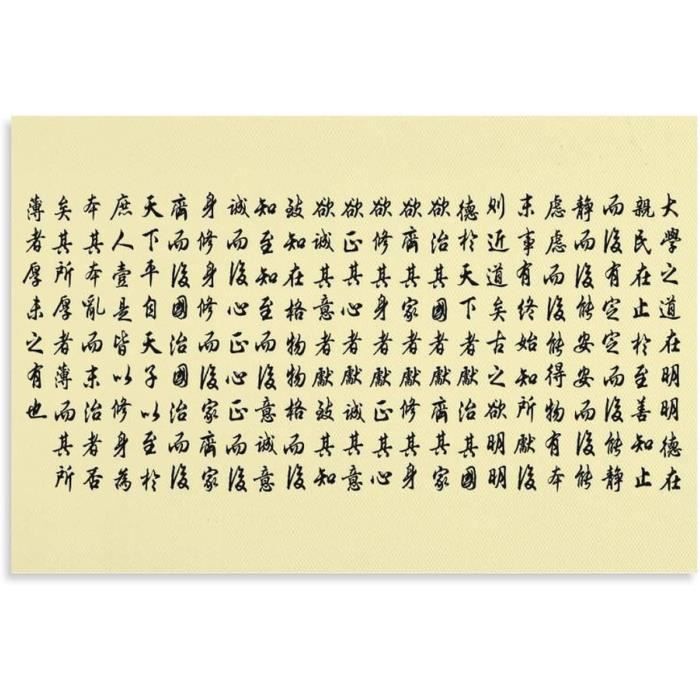 大學之道在明明德在
親民在止於至善知止
而後有定定而後能靜
靜而後能安安而後能
慮慮而後能得物有本
末事有終始知所獻後
則近道矣古之欲明明
德於天下者獻治其國
欲治其國者獻齊其家
欲齊其家者獻修其身
欲修其身者獻正其心
欲正其心者獻誠其意
欲誠其意者獻致其知
致知在格物物格而後
知至知至而後意誠意
誠而後心正心正而後
身修身修而後家齊家
齊而後國治國治而後
天下平自天子以至於
庶人壹是皆以修身為
本其本亂而末治者否
矣其所厚者薄而其所
薄者厚未之有也